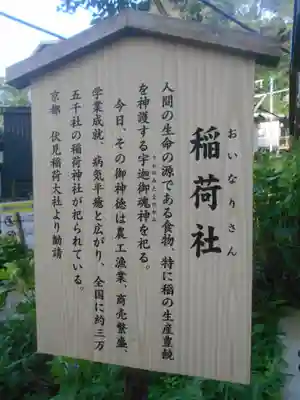 おいなりさん
稲荷社
人間の生命の源である食物、特に稲の生産豊饒
を神護する宇迦御魂神を祀る。
うかのみたまのかみ
今日、その御神徳は農工漁業、商売繁盛、
学業成就、病気平癒と広がり、全国に約三万
五千社の稲荷神社が祀られている。
京都 伏見稲荷大社より勧請